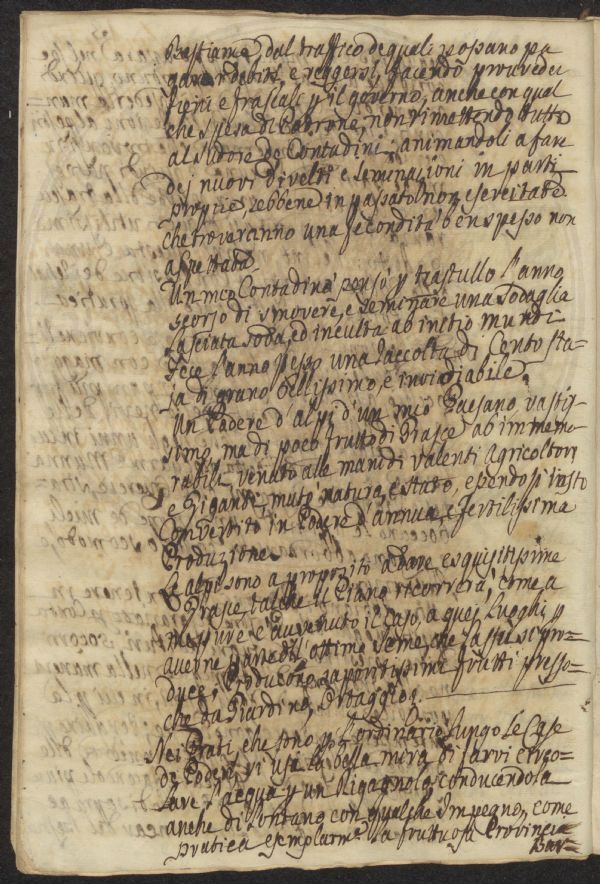 Bestiame, dal traffico de quali possano pa
gare i debiti, e reggersi, facendo provvedi
fieni e frascali p il governo, anche con qual
che spesa di Padrone, non rimettendo tutto
al sudore de Contadini, animandoli a fare
dei nuovi divelti e seminazioni in parti
proprie, sebbene in passato non esercitate
che troveranno una fecondità ben spesso non
aspettata
Un mio Contadino pensò p trastullo l'anno
scorso di smovere, e seminare una sodaglia
lasciata soda, ed inculta ab initio mundi
Fece l'anno stesso una raccolta di Cento sta-
ja di grano bellissimo, e invidiabile.
Un Podere d'alpi d'un mio Paesano, vastis-
simo, ma di poco frutto di ab imme
rabili, venuto alle mani di valenti Agricoltori
e Giganti, mutò natura, e stato, essendosi
Convertito in Podere d'annua, e fertilissima
Produzione
Le alpi sono a proposito a dare esquisitissime
talche il Piano ricorrerà, come a
me pure è avvenuto il caso, a quei Luoghi, p
averne Patate d'ottimo seme, che lassù si pro-
duce; Producono saporitissimi frutti presso-
che da Giardino, Ortaggio.
Nei Prati, che sono p l'ordinario lungo le Case
de Poderi, vi usi la bella mira di farvi
lare l'acqua p un Rigagnolo, conducendola
anche di lontano con qualche Impegno, come
pratica esemplarmte la fruttuosa Provincia
Bar-